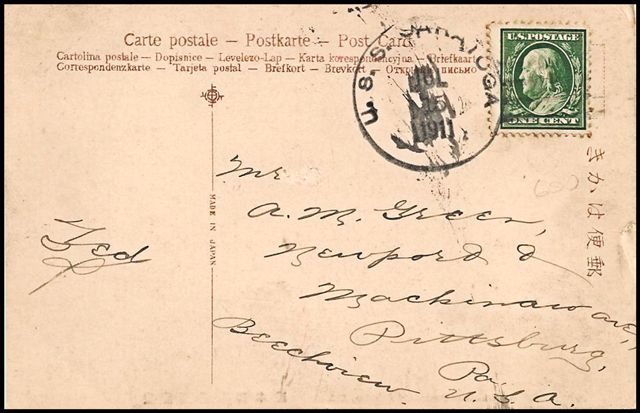 Carte postale – Postkarte – Post Card
Cartolina postale – Dopisnice – Levelezo-Lap – Karta korespondencyjna – Briefkaart
Correspondenzkarte – Tarjeta postal – Brefkort – Brevkort – Открытое письмо
U.S.S. SARATOGA
JUL
15
1911
U.S. POSTAGE
ONE CENT
きかは便郵
MADE IN JAPAN
Ted
Mr
A. M. Green,
Newport &
Mackinaw ave,
Pittsburg,
Beechview Pa.
U.S.A.